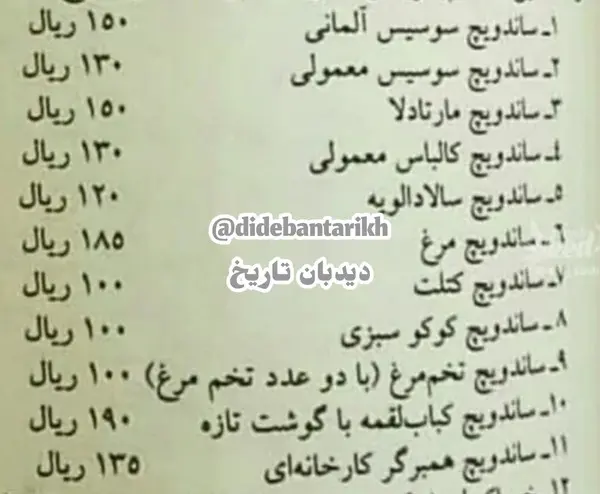 ۱ـ ساندویچ سوسیس آلمانی ۱۵۰ ریال
۲ـ ساندویچ سوسیس معمولی ۱۳۰ ریال
۳ـ ساندویچ مارتادلا ۱۵۰ ریال
۴ـ ساندویچ کالباس معمولی ۱۳۰ ریال
۵ـ ساندویچ سالادالویه ۱۲۰ ریال
@didebantarikh
۶ـ ساندویچ مرغ ۱۸۵ ریال
دیدبان تاریخ
۷ـ ساندویچ کتلت ۱۰۰ ریال
۸ـ ساندویچ کوکو سبزی ۱۰۰ ریال
۹ـ ساندویچ تخم‌مرغ (با دو عدد تخم مرغ) ۱۰۰ ریال
۱۰ـ ساندویچ کباب‌لقمه با گوشت تازه ۱۹۰ ریال
۱۱ـ ساندویچ همبرگر کارخانه‌ای ۱۳۵ ریال
۱۲ـ